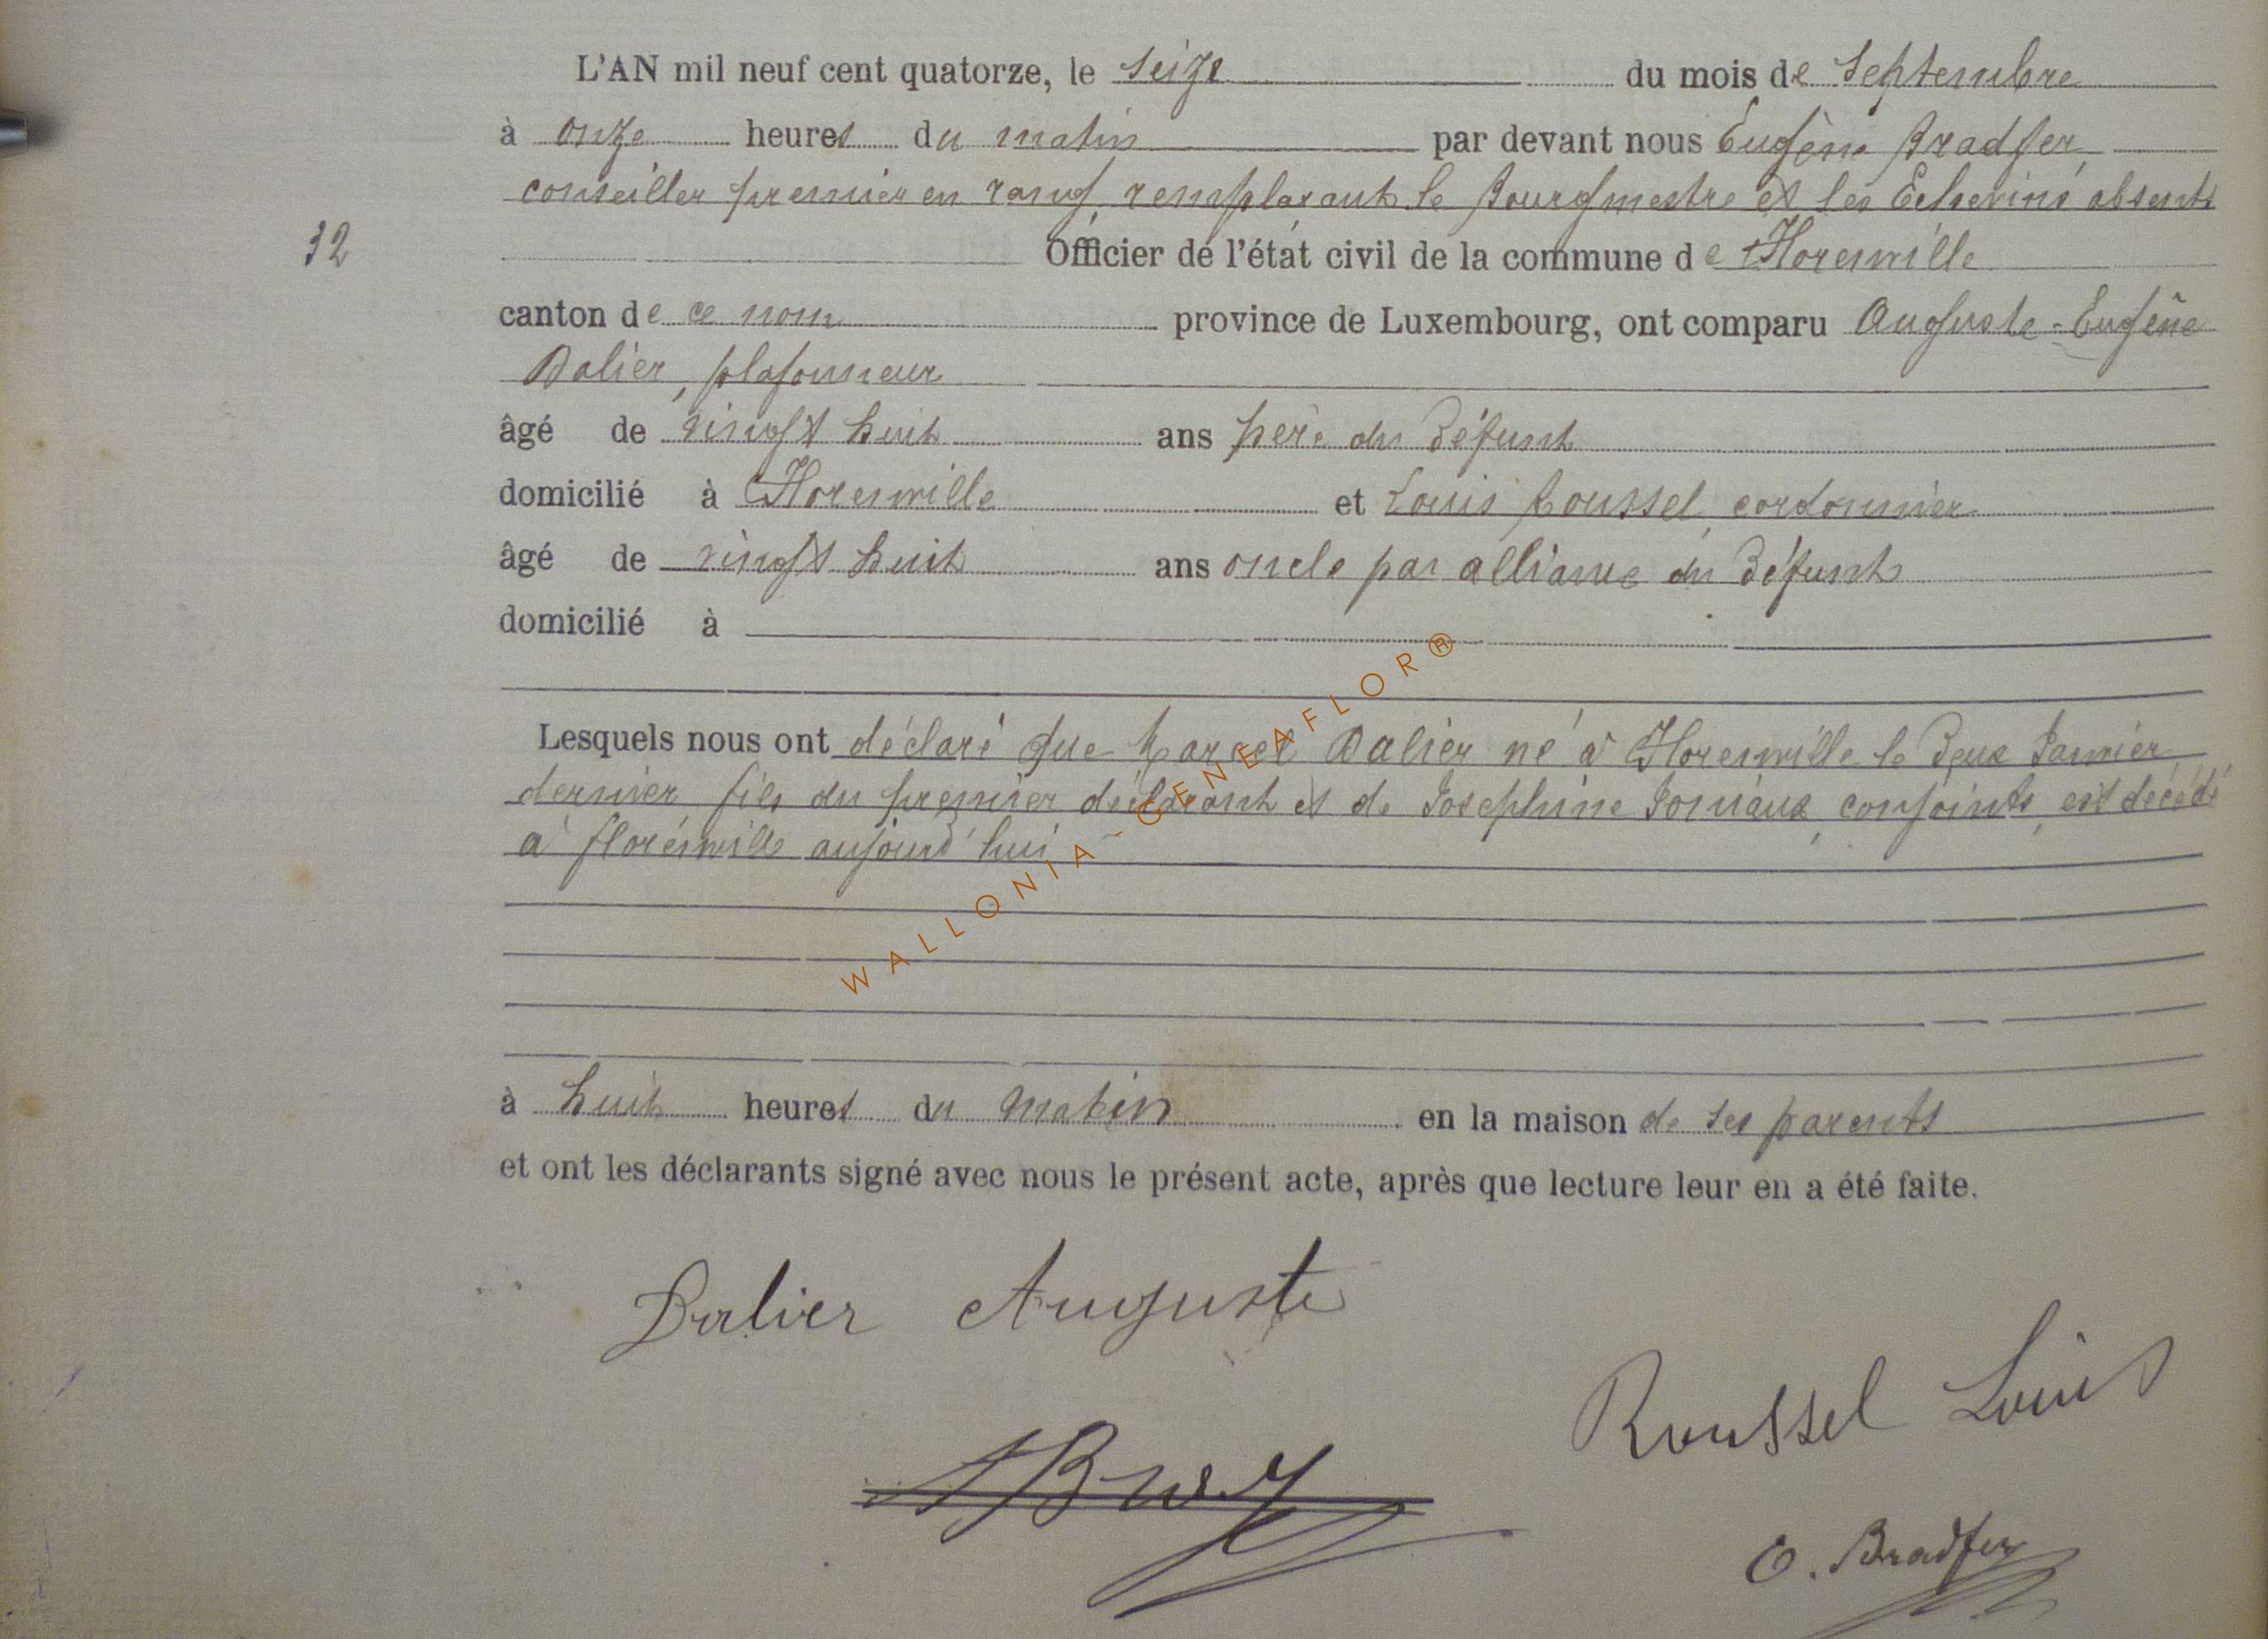 L'AN mil neuf cent quatorze, le seize du mois de Septembre
à onze heures du matin par devant nous Eugène Bradfer,
conseiller premier en rang, remplaçant le Bourgmestre et les Echevins absents
32 Officier de l'état civil de la commune de Florenville
canton de ce nom province de Luxembourg, ont comparu Auguste-Eugène
Dalier, plafonneur
âgé de vingt huit ans père du défunt
domicilié à Florenville et Louis Roussel, cordonnier
âgé de vingt huit ans oncle par alliance du défunt
domicilié à
Lesquels nous ont déclaré que Marcel Dalier né à Florenville le deux Janvier
dernier fils du premier déclarant et de Josephine Joniaux, conjoints, est décédé
à florenville aujourd'hui
à huit heures du matin en la maison de ses parents
et ont les déclarants signé avec nous le présent acte, après que lecture leur en a été faite.
Dalier Auguste
Roussel Louis
E. Bradfer
WALLONIA-GENEAFLOR®